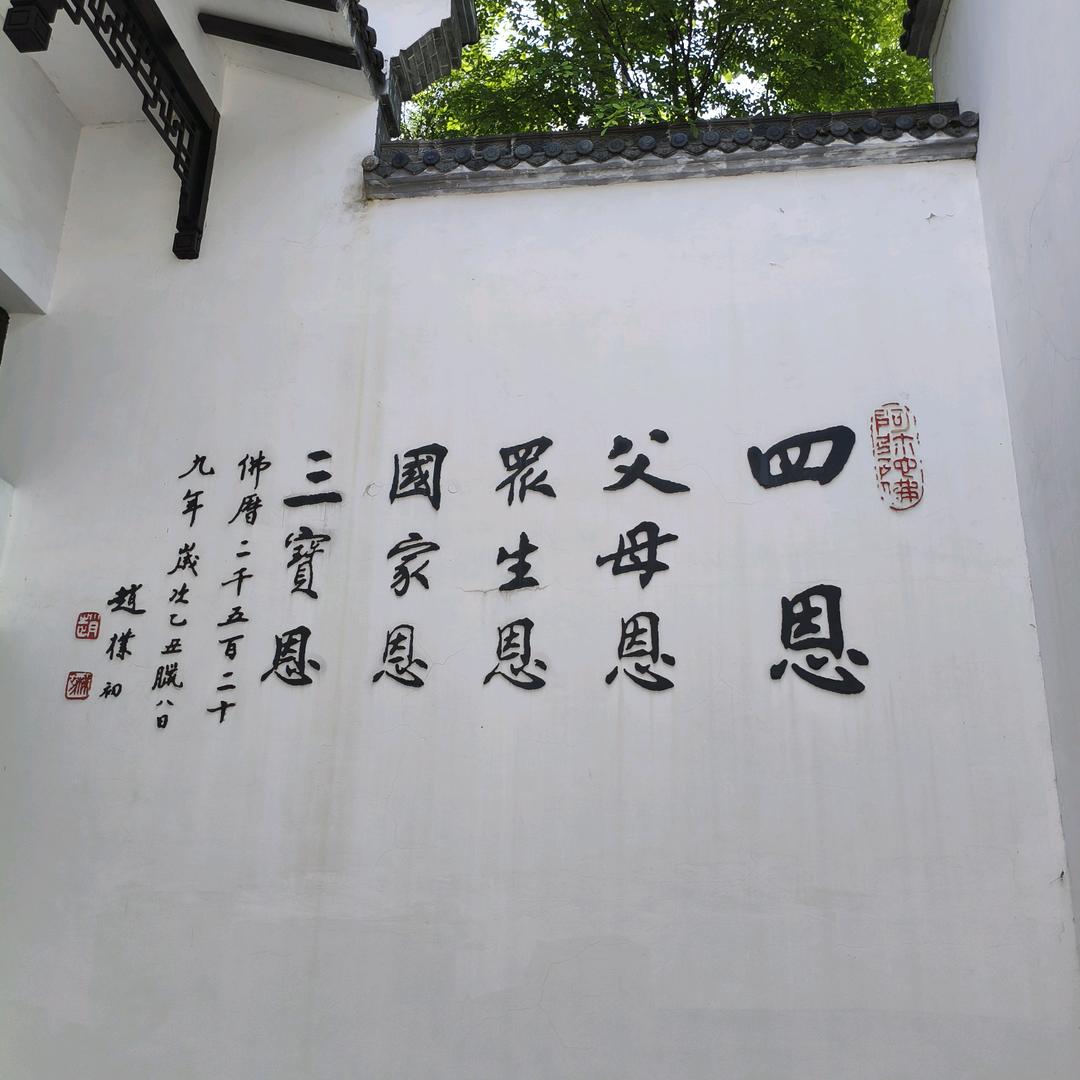 阿彌陀佛
四恩
父母恩
眾生恩
國家恩
三寶恩
佛曆二千五百二十
九年歲次乙丑臘八日
趙樸初